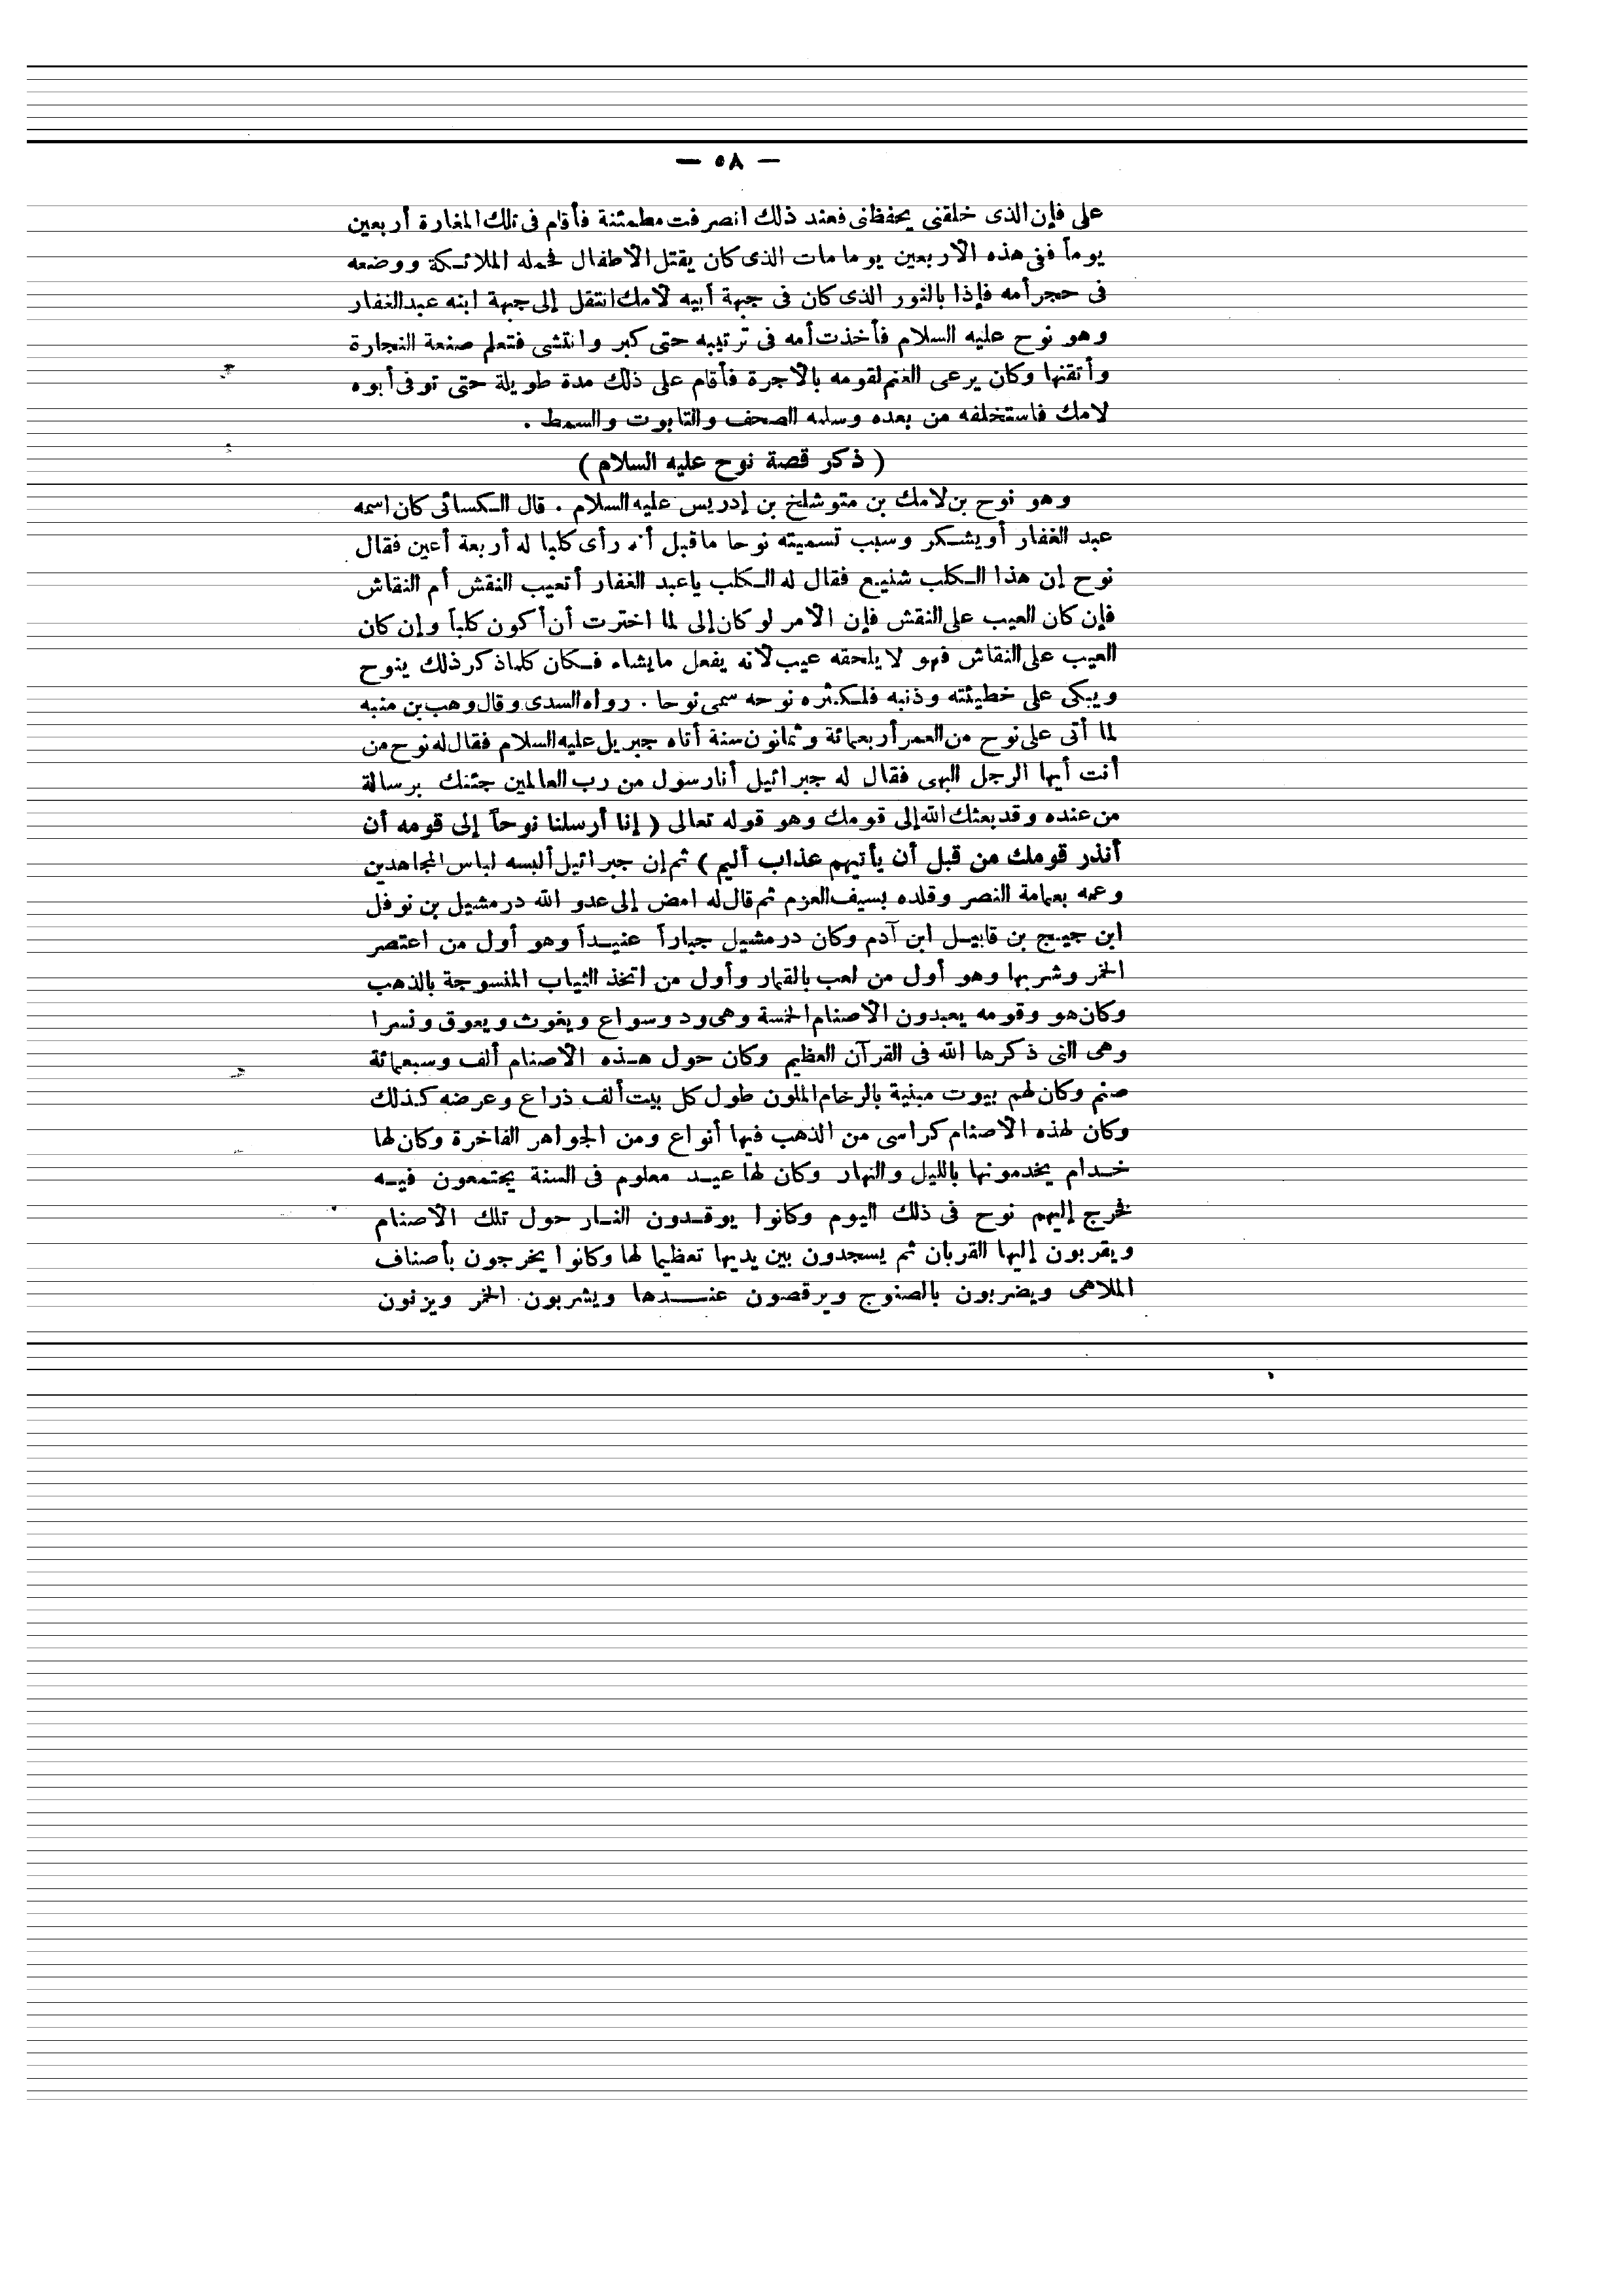 — ٥٨ —
على فإن الذى خلقنى يحفظنى فعند ذلك انصرفت مطمئنة فأقام فى تلك المغارة أربعين
يوماً ففى هذه الأربعين يوما مات الذى كان يقتل الأطفال فحمله الملائكة ووضعه
فى حجر أمه فإذا بالنور الذى كان فى جبهة أبيه لامك انتقل إلى جبهة ابنه عبد الغفار
وهو نوح عليه السلام فأخذت أمه فى ترتيبه حتى كبر وانتشى فتعلم صنعة النجارة
وأتقنها وكان يرعى الغنم لقومه بالأجرة فأقام على ذلك مدة طويلة حتى توفى أبوه
لامك فاستخلفه من بعده وسلمه الصحف والتابوت والسمط .
( ذكر قصة نوح عليه السلام )
وهو نوح بن لامك بن متوشلخ بن إدريس عليه السلام . قال الكسائى كان اسمه
عبد الغفار أو يشكر وسبب تسميته نوحا ماقيل أنه رأى كلبا له أربعة أعين فقال
نوح إن هذا الكلب شنيع فقال له الكلب ياعبد الغفار أتعيب النقش أم النقاش
فإن كان العيب على النقش فإن الأمر لو كان إلى لما اخترت أن أكون كلباً وإن كان
العيب على النقاش فهو لا يلحقه عيب لأنه يفعل مايشاء فكان كلما ذكر ذلك ينوح
ويبكى على خطيئته وذنبه فلكثره نوحه سمى نوحا . رواه السدى وقال وهب بن منبه
لما أتى على نوح من العمر أربعمائة وثمانون سنة أتاه جبريل عليه السلام فقال له نوح من
أنت أيها الرجل البهى فقال له جبرائيل أنا رسول من رب العالمين جئتك برسالة
من عنده وقد بعثك الله إلى قومك وهو قوله تعالى ( إنا أرسلنا نوحاً إلى قومه أن
أنذر قومك من قبل أن يأتيهم عذاب أليم ) ثم إن جبرائيل ألبسه لباس المجاهدين
وعمه بعمامة النصر وقلده بسيف العزم ثم قال له امض إلى عدو الله درمشيل بن نوفل
ابن جيج بن قابيل ابن آدم وكان درمشيل جباراً عنيداً وهو أول من اعتصر
الخمر وشربها وهو أول من لعب بالقمار وأول من اتخذ الثياب المنسوجة بالذهب
وكان هو وقومه يعبدون الأصنام الخمسة وهى ود وسواع ويغوث ويعوق ونسرا
وهى التى ذكرها الله فى القرآن العظيم وكان حول هذه الأصنام ألف وسبعمائة
صنم وكان لهم بيوت مبنية بالرخام الملون طول كل بيت ألف ذراع وعرضه كذلك
وكان لهذه الأصنام كراسى من الذهب فيها أنواع ومن الجواهر الفاخرة وكان لها
خدام يخدمونها بالليل والنهار وكان لها عيد معلوم فى السنة يجتمعون فيه
فخرج إليهم نوح فى ذلك اليوم وكانوا يوقدون النار حول تلك الأصنام
ويقربون إليها القربان ثم يسجدون بين يديها تعظيما لها وكانوا يخرجون بأصناف
الملاهى ويضربون بالصنوج ويرقصون عندها ويشربون الخمر ويزنون